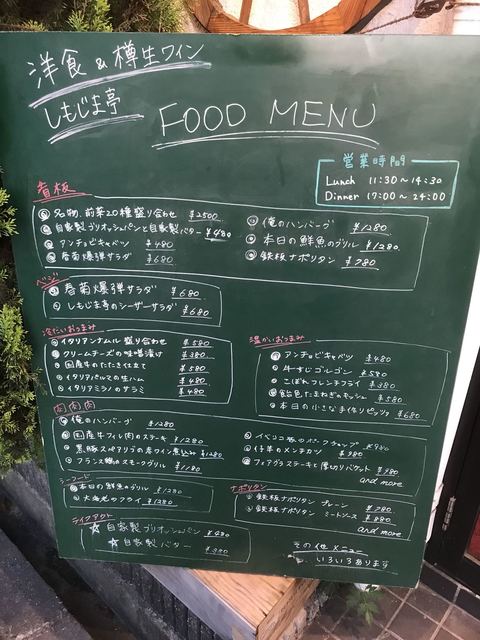 洋食&樽生ワイン
しもじま亭
FOOD MENU
営業時間
Lunch 11:30〜14:30
Dinner 17:00〜24:00
看板
名物、前菜20種盛り合わせ ¥2500
自家製ブリオッシュパンと自家製バター ¥480
アンチョビキャベツ ¥480
春菊爆弾サラダ ¥680
俺のハンバーグ ¥1280
本日の鮮魚のグリル ¥1280
鉄板ナポリタン ¥780
ベジ
春菊爆弾サラダ ¥680
しもじま亭のシーザーサラダ ¥680
冷たいおつまみ
イタリアンナムル盛り合わせ ¥580
クリームチーズの味噌漬け ¥380
国産牛のたたき仕立て ¥580
イタリアパルマの生ハム ¥480
イタリアミラノのサラミ ¥480
温かいおつまみ
アンチョビキャベツ ¥480
牛すじゴルゴン ¥580
こぼれフレンチフライ ¥380
飴色たまねぎのモッシュ ¥580
本日の小さな手作りピッツァ ¥680
肉肉肉
俺のハンバーグ ¥1280
国産牛フィレ肉のステーキ ¥1280
黒豚スペアリブの赤ワイン煮込み ¥1280
フランス鴨のスモークグリル ¥1180
イベリコ豚のポークチャップ ¥980
仔羊のメンチカツ ¥380
フォアグラステーキと厚切りバケット ¥980
and more
シーフード
本日の鮮魚のグリル ¥1280
大海老のフライ ¥1280
ナポリタン
鉄板ナポリタン プレーン ¥780
鉄板ナポリタン ミートソース ¥880
and more
テイクアウト
☆自家製ブリオッシュパン ¥480
☆自家製バター ¥380
その他メニュー
いろいろあります